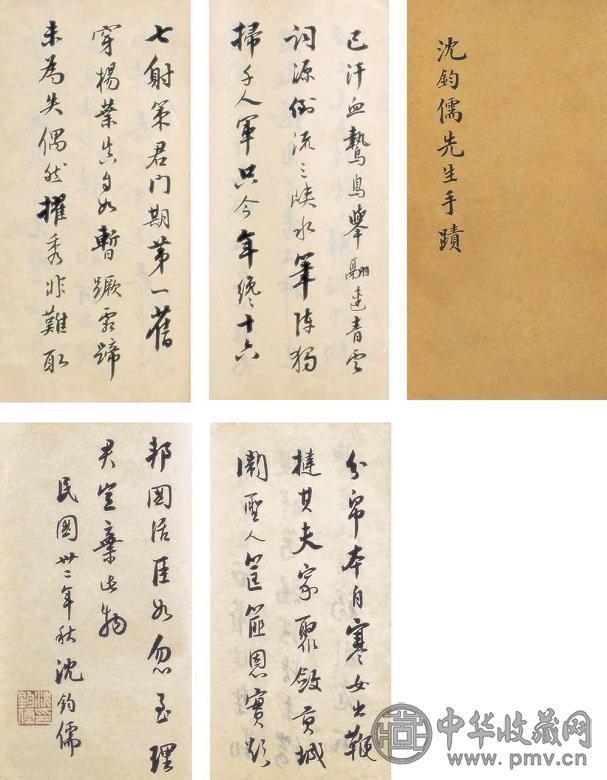 沈鈞儒先生手蹟
已汗血鷙鳥舉翮連青雲
詞源倒流三峽水筆陣獨
掃千人軍只今年纔十六
七射策君門期第一舊
穿楊葉真自知暫蹶霜蹄
未為失偶然擢秀非難取
分帛本自寒女出鞭
撻其夫家聚斂貢城
闕聖人筐篚恩實欲
邦國活臣如忽至理
君豈棄此物
民國卅二年秋沈鈞儒
中华收藏网
www.pmv.cn